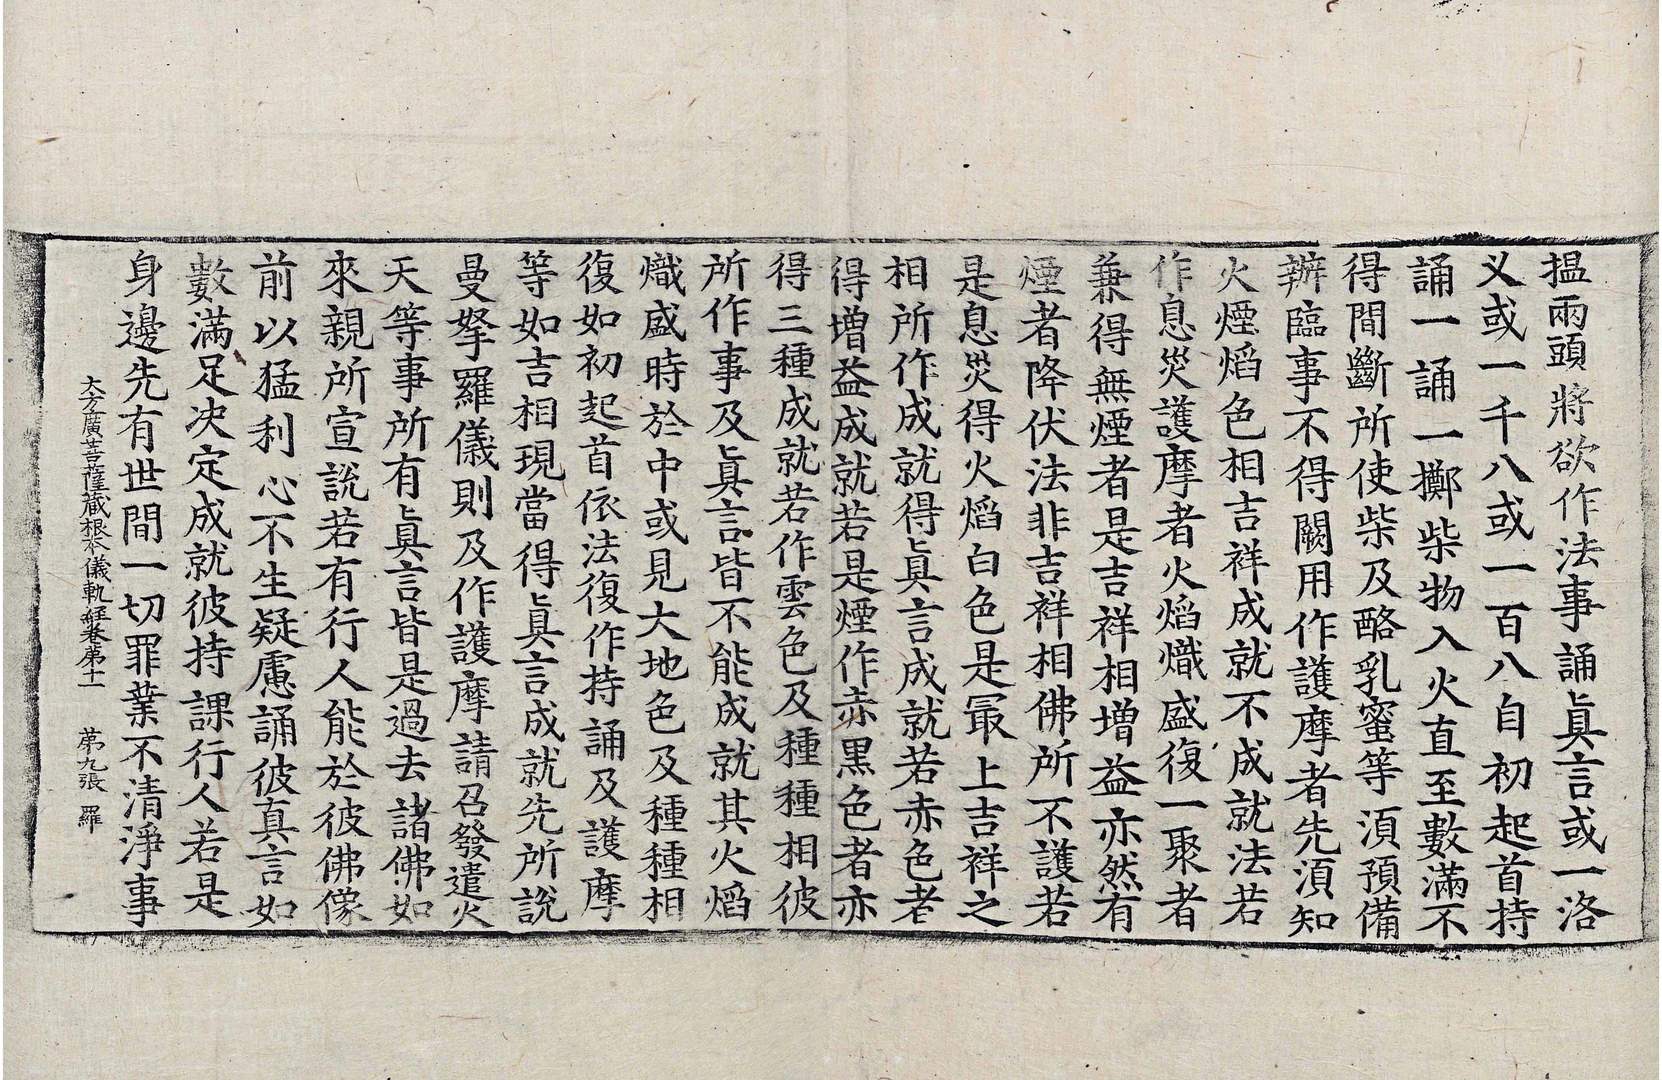 搵兩頭將欲作法事誦眞言或一洛
义或一千八或一百八自初起首持
誦一誦一擲柴物入火直至數滿不
得間斷所使柴及酪乳蜜等湏預備
辦臨事不得闕用作護摩者先湏知
火煙焰色相吉祥成就不成就法若
作息災護摩者火焰熾盛復一聚者
兼得無煙者是吉祥相增益亦然有
煙者降伏法非吉祥相佛所不護若
是息災得火焰白色是冣上吉祥之
相所作成就得眞言成就若赤色者
得增益成就若是煙作赤黑色者亦
得三種成就若作雲色及種種相彼
所作事及眞言皆不能成就其火焰
熾盛時於中或見大地色及種種相
復如初起首依法復作持誦及護摩
等如吉相現當得眞言成就先所說
曼拏羅儀則及作護摩請召發遣火
天等事所有眞言皆是過去諸佛如
來親所宣說若有行人能於彼佛像
前以猛利心不生疑慮誦彼真言如
數滿足决定成就彼持課行人若是
大方廣菩薩藏根本儀軌經卷第十一 第九張 羅
身邊先有世間一切罪業不清淨事